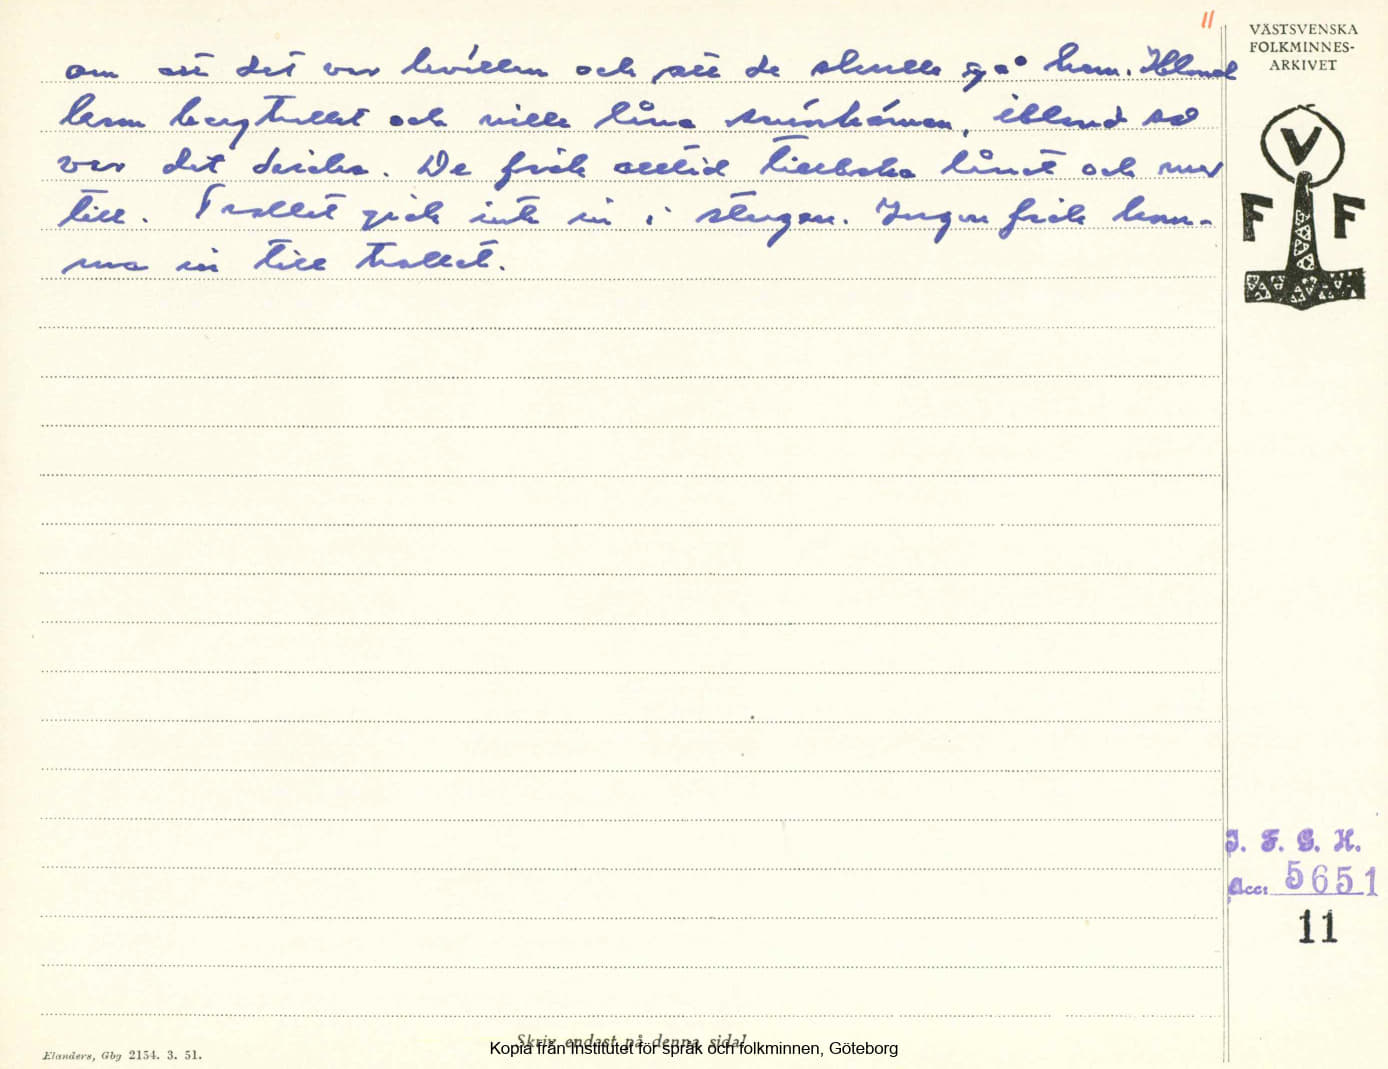 11
VÄSTSVENSKA
FOLKMINNES-
ARKIVET
om att det var kvällen och att de skulle gå hem. Ibland
kom bergtrollet och ville låna, ibland så
var det dricka. De fick alltid tillbaka lånet och mer
till. Trollet gick inte in i stugan. Ingen fick kom-
ma in till trollet.
V
F F
I. F. G. H.
Acc: 5651
11
Skriv endast på denna sida!
Kopia från Institutet för språk och folkminnen, Göteborg
Elanders, Gbg 2154. 3. 51.